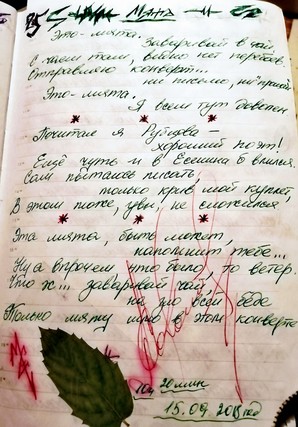 Мята
Это – мята. Заваривай в чай,
в чаем
Отправляю конверт...
ни письмо, ни
Это – мята.
Я всем тут доволен
* * *
Почитал я Рубцова –
хороший поэт!
Ещё чуть и в Есенина б влился.
Сам пытаюсь писать,
только крив мой куплет,
В этом тоже, увы, не сложился
* * *
Эта мята, быть может,
напомнит тебе...
Ну а впрочем, что было, то ветер.
Что ж... заваривай чай,
на зло всей беде
Только мяту ищи в этом конверте
20 мин
15.09. 2015 год